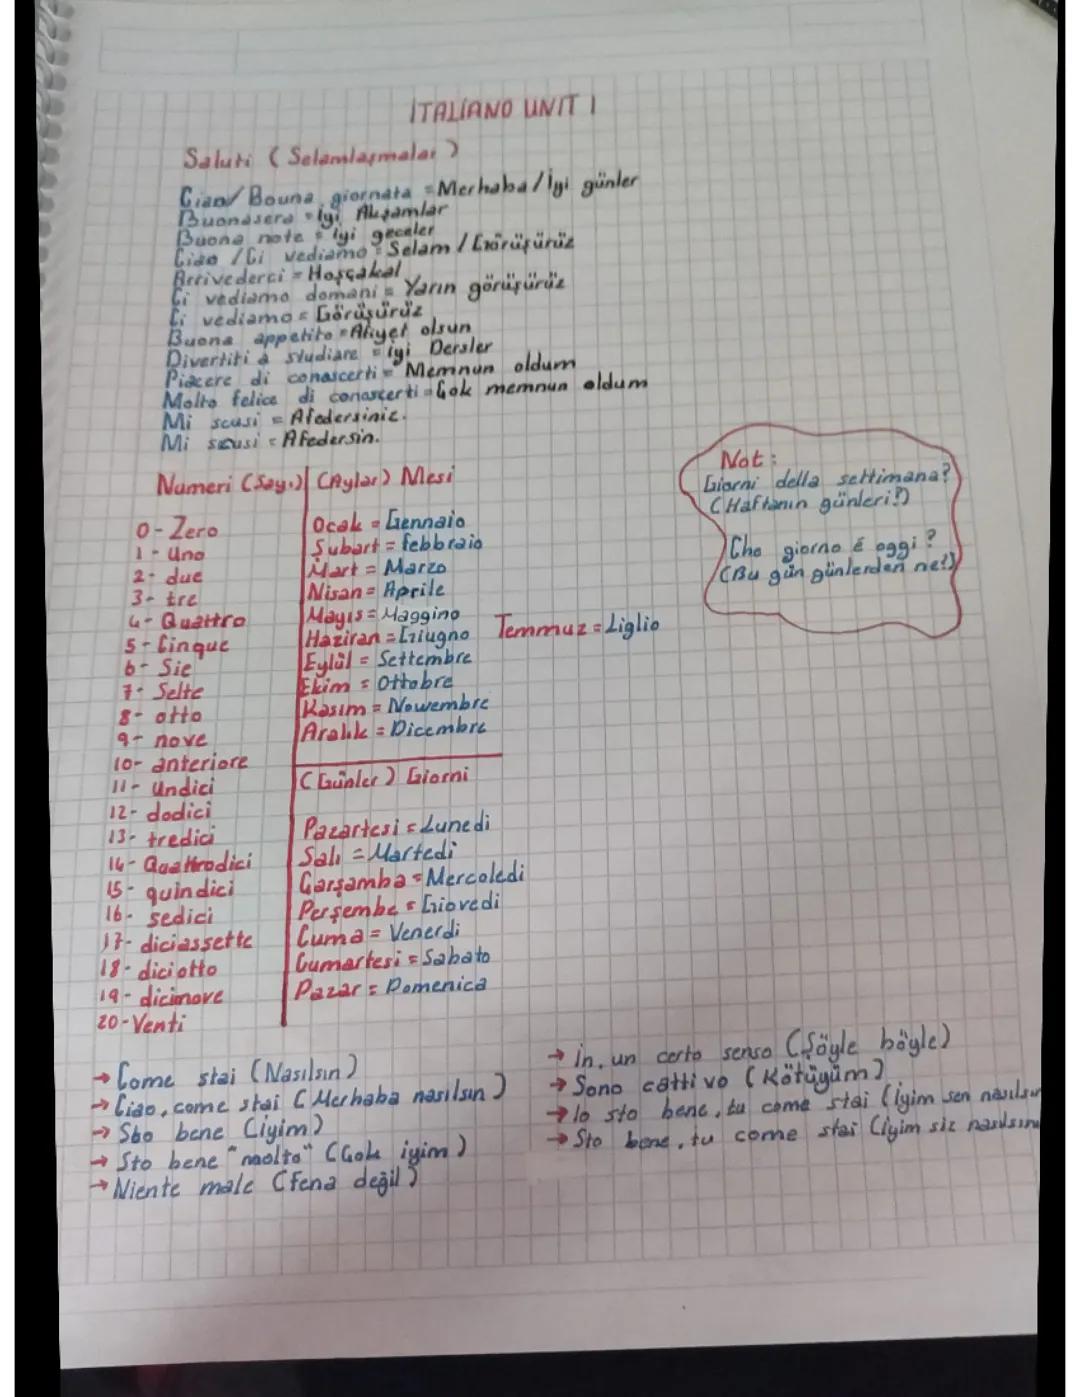 İTALİANO UNIT 1
Saluti ( Selamlaşmalar )
Ciao/ Bouna giornata = Merhaba / İyi günler
Buonasera = İyi Akşamlar
Buona note = İyi geceler
Ciao / Ci vediamo = Selam / Görüşürüz
Arrivederci = Hoşçakal
Ci vediamo domani = Yarın görüşürüz
Ci vediamo = Görüşürüz
Buona appetito = Afiyet olsun
Divertiti a studiare = İyi Dersler
Piacere di conascerti = Memnun oldum
Molto felice di conascerti = Çok memnun oldum
Mi scusi = Afedersiniz.
Mi scusi = Afedersin.
Not :
Giorni della settimana?
(Haftanın günleri?)
Che giorno é oggi ?
(Bu gün günlerden ne?)
Numeri (Sayı)
0 - Zero
1 - Uno
2 - due
3 - tre
4 - Quattro
5 - Cinque
6 - Sie
7 - Selte
8 - otto
9 - nove
10 - anteriore
11 - Undici
12 - dodici
13 - tredici
14 - Quattrodici
15 - quindici
16 - sedici
17 - diciassette
18 - diciotto
19 - dicinove
20 - Venti
(Aylar) Mesi
Ocak = Gennaio
Şubart = febbraio
Mart = Marzo
Nisan = Aprile
Mayıs = Maggino
Haziran = Giugno Temmuz = Liglio
Eylül = Settembre
Ekim = Ottobre
Kasım = Nowembre
Aralık = Dicembre
(Günler) Giorni
Pazartesi = Lunedi
Salı = Martedi
Çarşamba = Mercoledi
Perşembe = Giovedi
Cuma = Venerdi
Cumartesi = Sabato
Pazar = Domenica
→ Come stai (Nasılsın)
→ Ciao, come stai (Merhaba nasılsın)
→ Sto bene (iyim)
→ Sto bene "molto" (Çok iyim)
→ Niente male (fena değil)
→ in, un certo senso (Şöyle böyle)
→ Sono cattivo (Kötüyüm)
→ Io sto bene, tu come stai (iyim sen nasılsın
→ Sto bene, tu come stai (iyim siz nasılsını